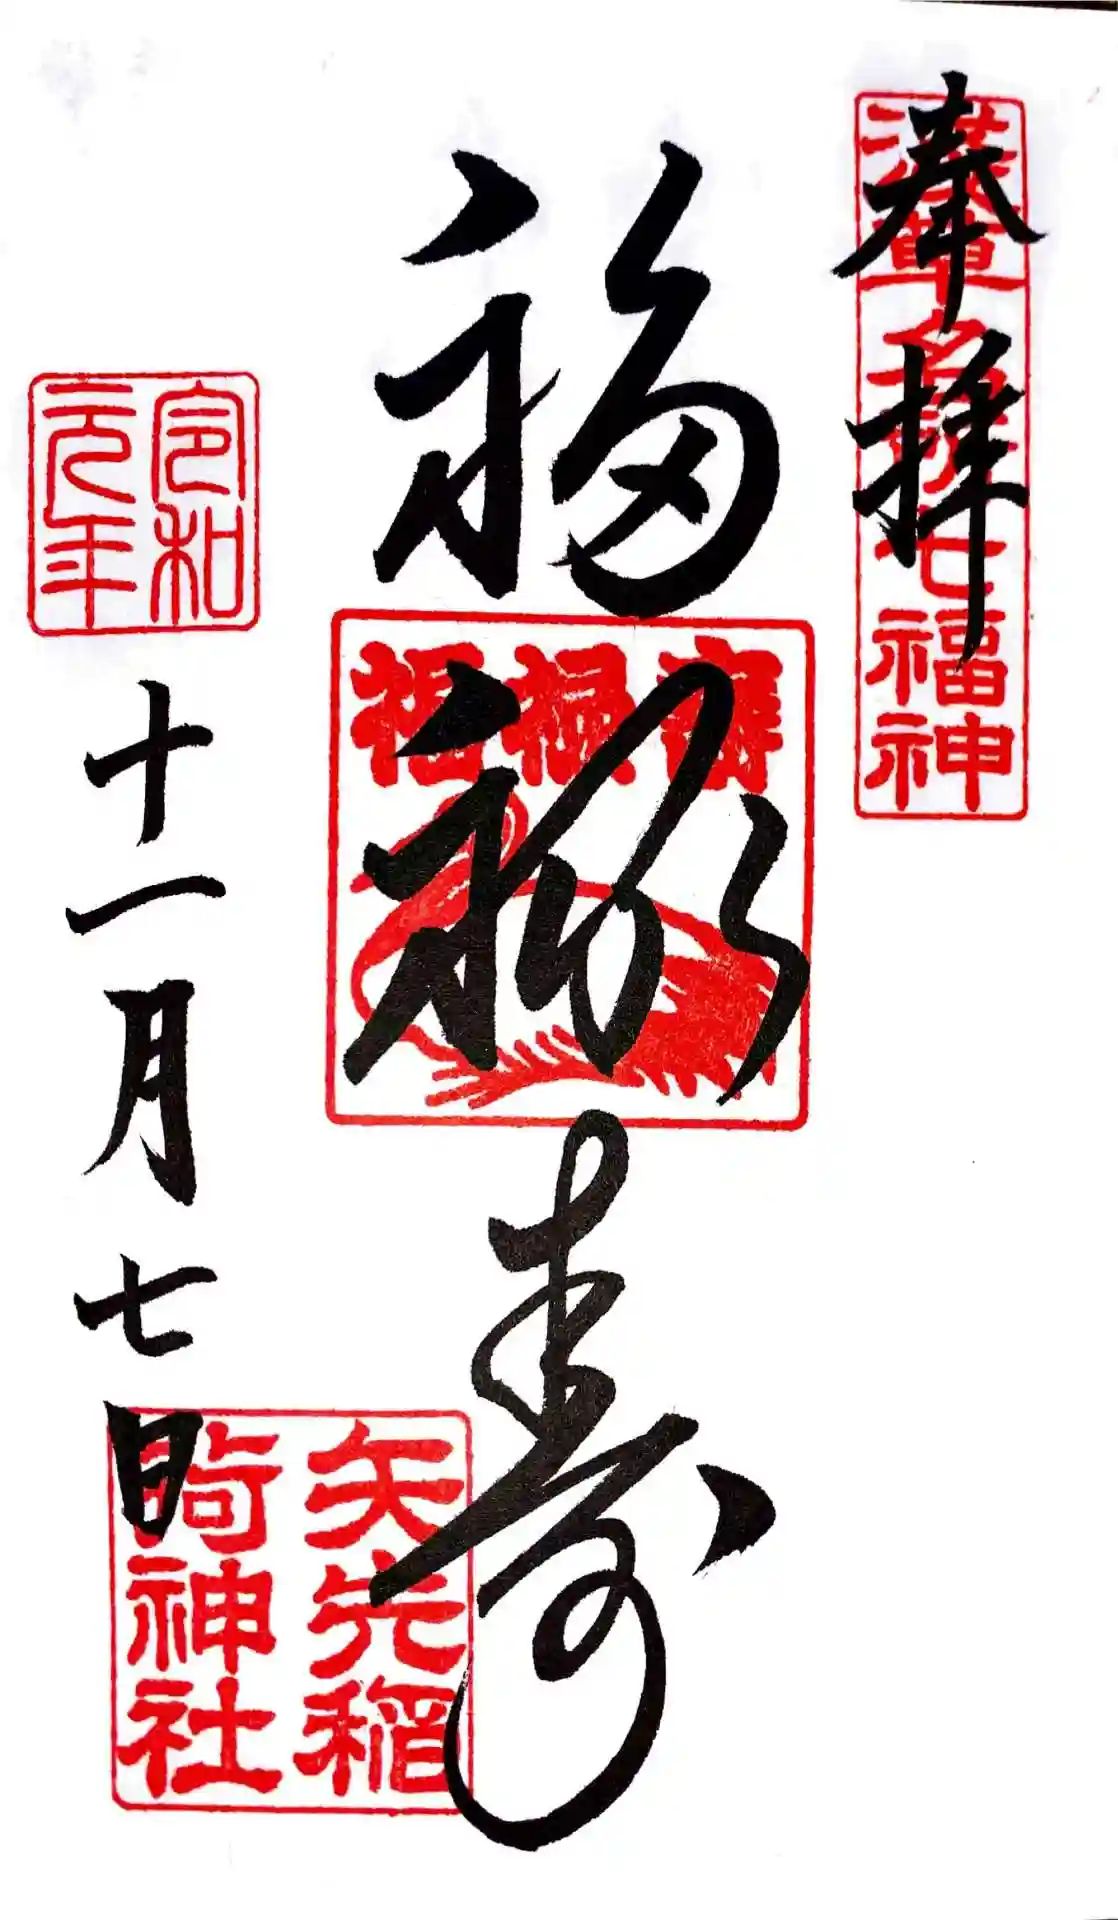 奉拝
浅草名所七福神
福禄寿
福禄寿
令和元年
十一月七日
矢先稲
荷神社